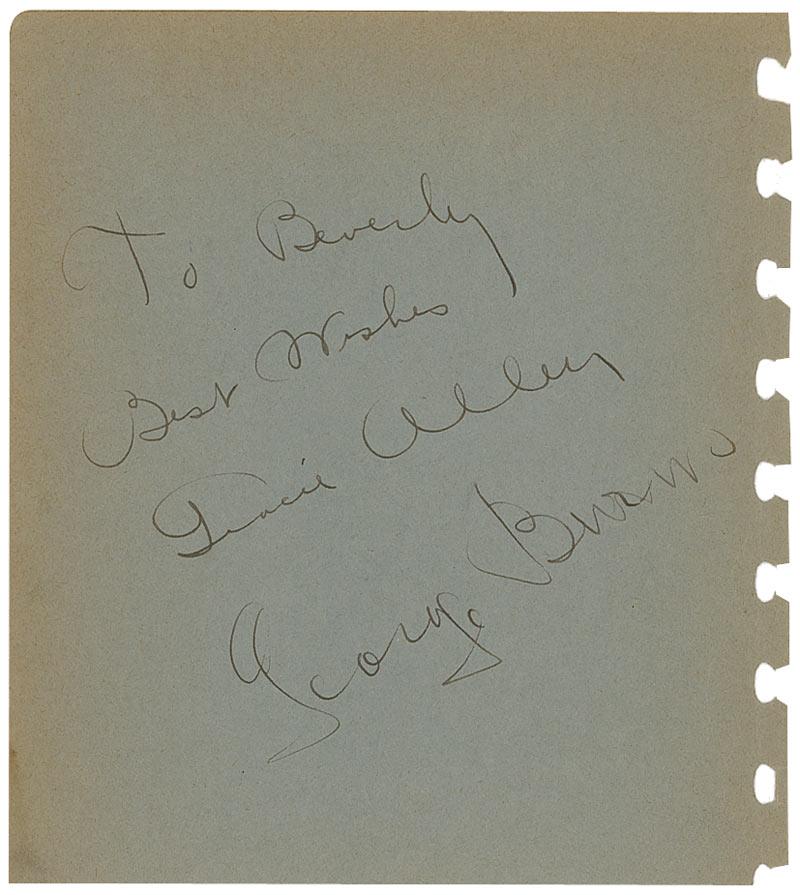 To Beverly
Best Wishes
Gracie Allen
George Burns